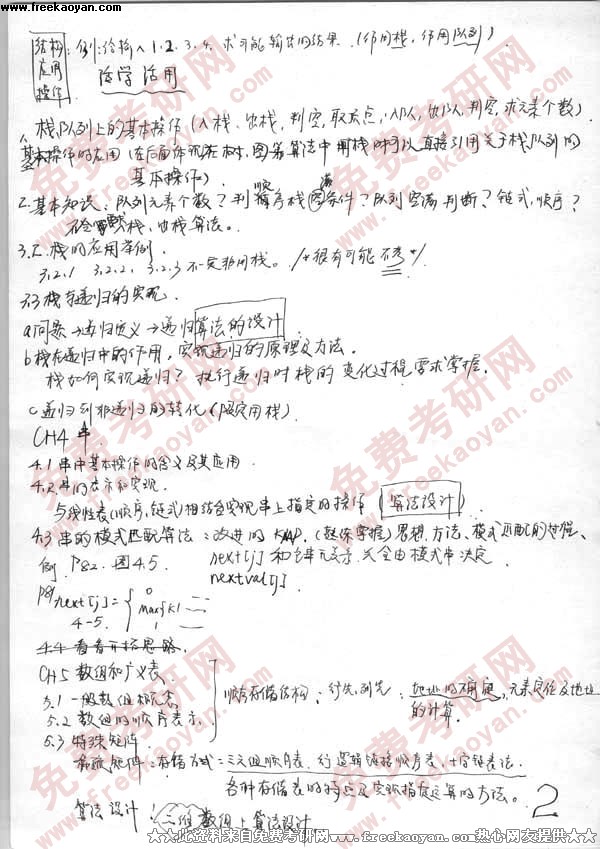 www.freekaoyan.com
结构应用操作 例:给输入1.2.3.4. 求可能输出的结果.(作用栈,作用队列)
活学活用
栈队列上的基本操作(入栈、出栈,判空,取顶点,入队,出队,判空,求元素个数)
1. 基本操作的应用(在后面体现在树,图等算法中用栈时可以直接引用关于栈队列的
基本操作)
2. 基本知识:队列元素个数?判顺序栈满条件?队列空满判断?链式,顺序?
入栈,出栈算法。
3.2 栈的应用举例.
3.2.1 3.2.2. 3.2.3 不一定非用栈。 /*很有可能不考*/
3.3 栈与递归的实现.
a 问题→递归定义→递归算法的设计
b 栈在递归中的作用,实现递归的原理及方法。
栈如何实现递归?执行递归时栈的变化过程,要求掌握.
c 递归到非递归的转化(限定用栈)
CH4 串
4.1 串中基本操作的含义及其应用.
4.2 串的表示和实现.
与线性表(顺序,链式)相结合实现串上指定的操作(算法设计)
4.3 串的模式匹配算法:改进的KMP.(熟练掌握)思想,方法、模式匹配的过程、
例. P82. 图4.5. next[j] 和主串无关,完全由模式串决定.
nextval[j]
P81 next[j]= { 0
4-5. Max{k|
1
4.4 看看开拓思路.
CH5 数组和广义表.
5.1 一般数组概念
5.2 数组的顺序表示.
顺序存储结构:行先,列先:地址的确定,元素定位及地址
的计算.
5.3 特殊矩阵
稀疏矩阵:存储方式:三元组顺序表.行逻辑链接顺序表.十字链表法.
各种存储表的特点及实现指定运算的方法。
算法设计!二维数组上算法设计
2
★☆此资料来自免费考研网www.freekaoyan.com热心网友提供★☆
免费考研网
www.freekaoyan.com